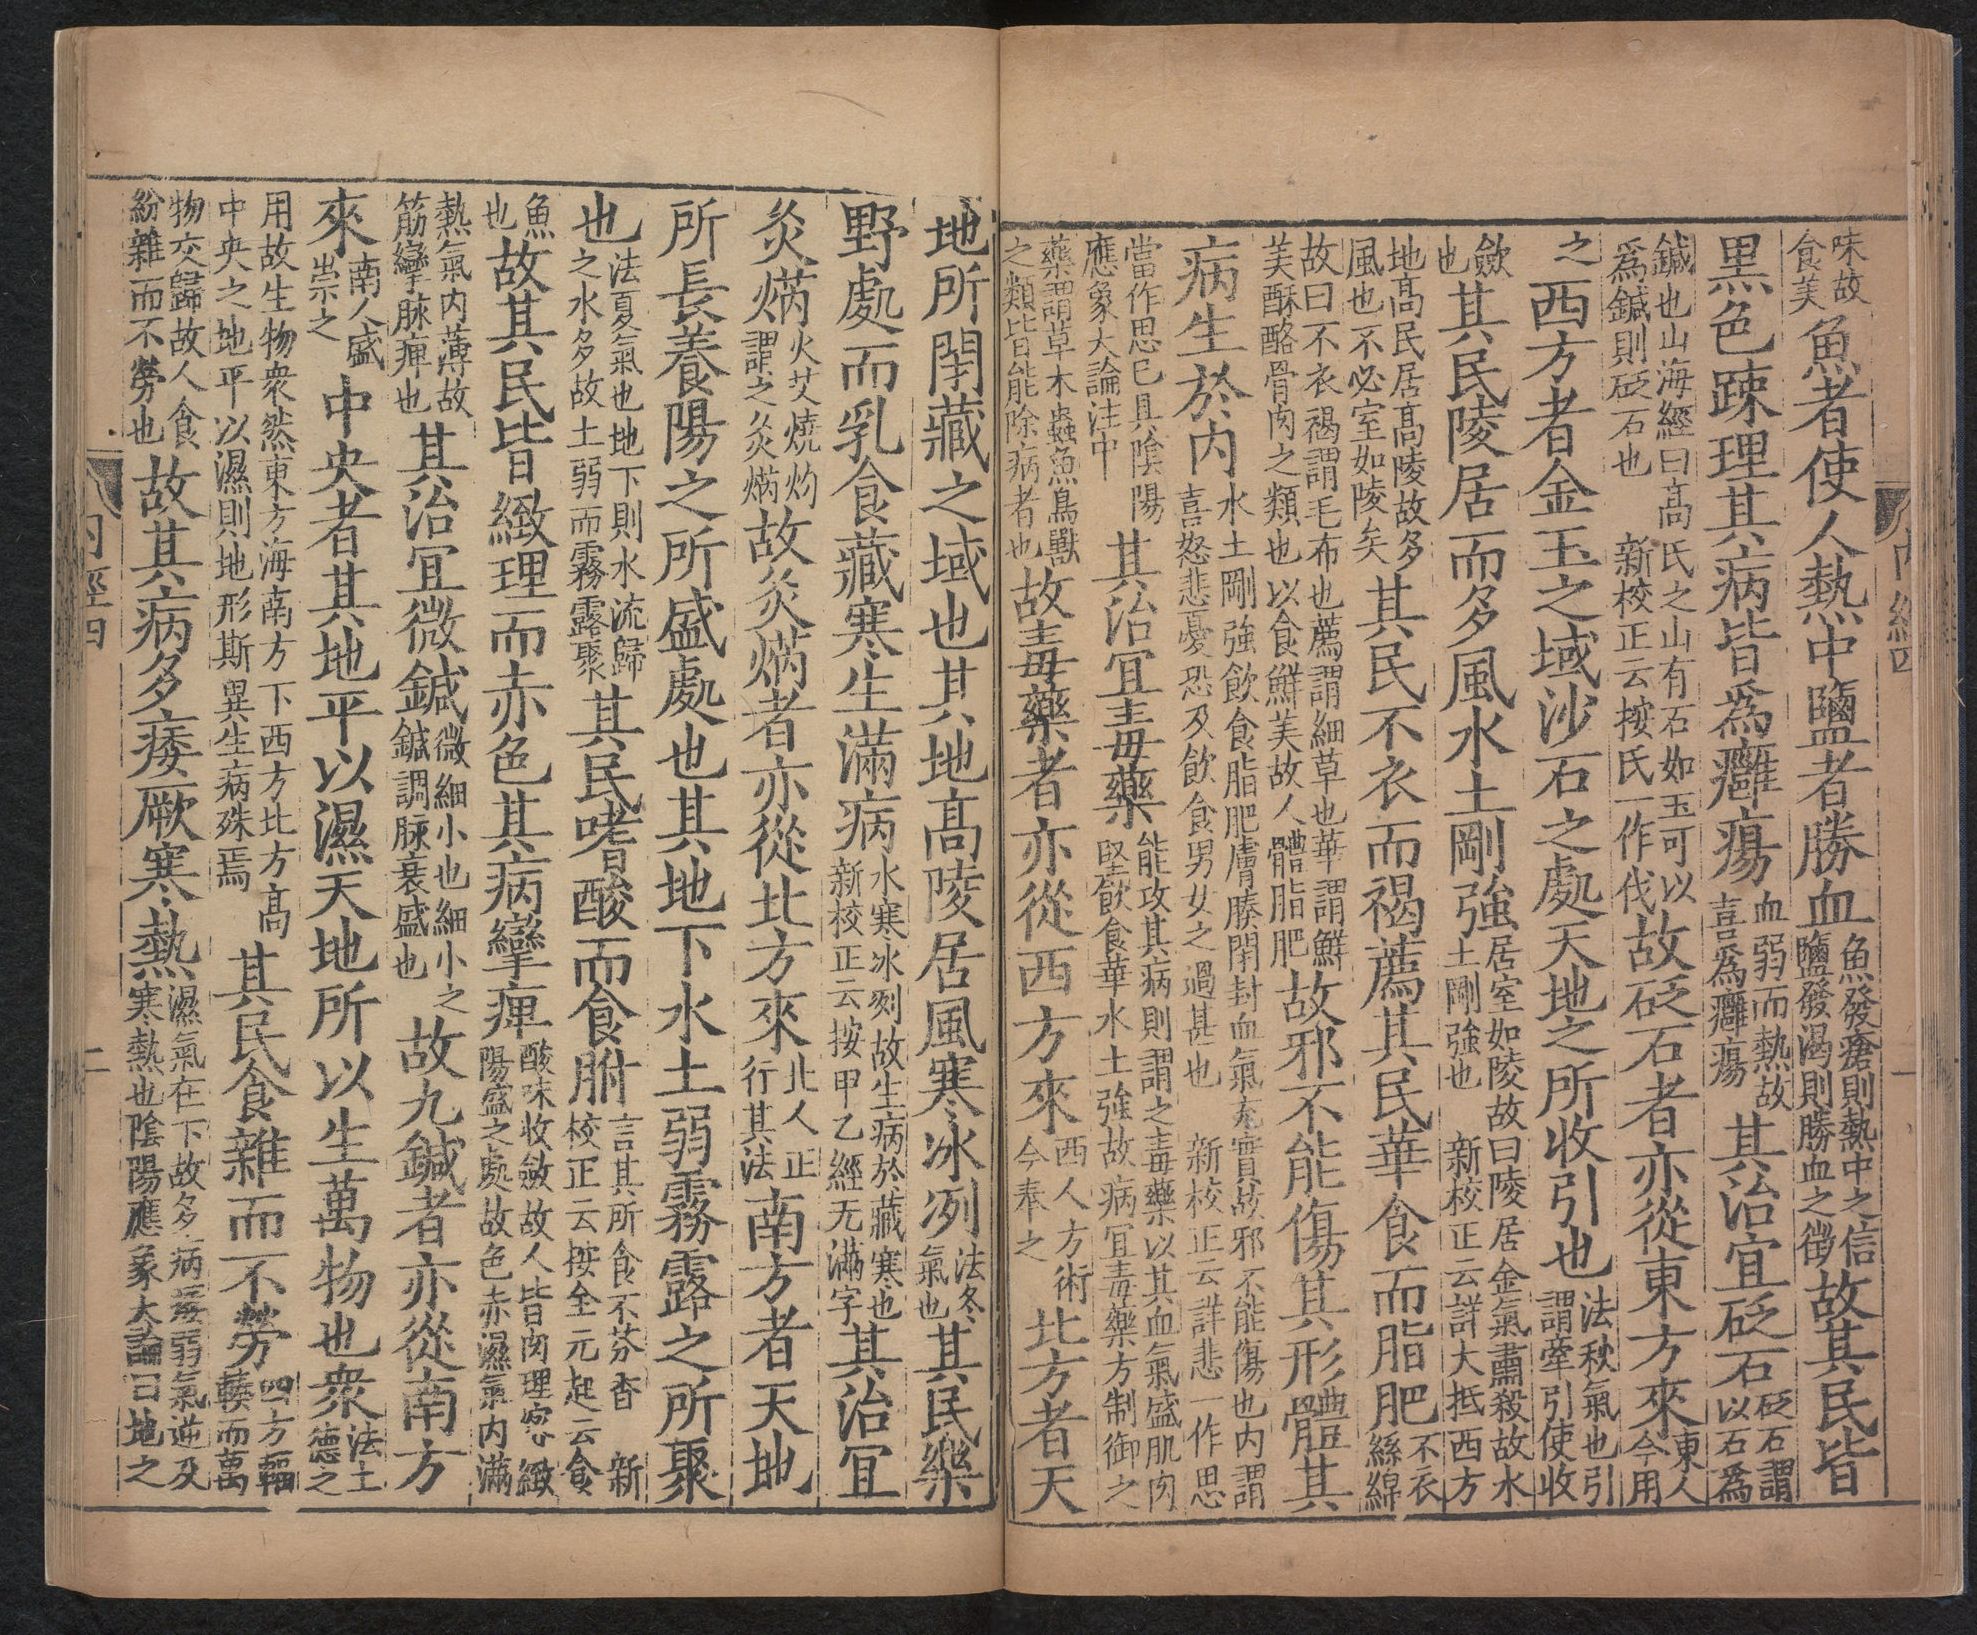 味故食美魚者使人熱中鹽者勝血魚發瘡則熱中之信鹽發渴則勝血之徵故其民皆
黒色疎理其病皆爲癰瘍血弱而熱故喜爲癰瘍其治宜砭石砭石謂以石爲
鍼也山海經曰高氏之山有石如玉可以爲鍼則砭石也新校正云按氏一作伐故砭石者亦從東方來東人今用
之西方者金玉之域沙石之處天地之所收引也法秋氣也引謂牽引使收
斂也其民陵居而多風水土剛強居室如陵故曰陵居金氣肅殺故水土剛強也新校正云詳大抵西方
地高民居高陵故多風也不必室如陵矣其民不衣而褐薦其民華食而脂肥不衣絲綿
故曰不衣褐謂毛布也薦謂細草也華謂鮮美酥酪骨肉之類也以食鮮美故人體脂肥故邪不能傷其形體其
病生於内水土剛強飲食脂肥膚腠閉封血氣充實故邪不能傷也内謂喜怒悲憂恐及飲食男女之過甚也新校正云詳悲一作思
當作思已具陰陽應象大論注中其治宜毒藥能攻其病則謂之毒藥以其血氣盛肌肉堅飲食華水土強故病宜毒藥方制御之
藥謂草木蟲魚鳥獸之類皆能除病者也故毒藥者亦從西方來西人方術今奉之北方者天
地所閉藏之域也其地高陵居風寒冰冽法冬氣也其民樂
野處而乳食藏寒生滿病水寒冰冽故生病於藏寒也新校正云按甲乙經无滿字其治宜
灸焫火艾燒灼謂之灸焫故灸焫者亦從北方來北人正行其法南方者天地
所長養陽之所盛處也其地下水土弱霧露之所聚
也法夏氣也地下則水流歸之水多故土弱而霧露聚其民嗜酸而食胕言其所食不芬香新校正云按全元起云食
魚也故其民皆緻理而赤色其病攣痺酸味收斂故人皆肉理密緻陽盛之處故色赤濕氣内滿
熱氣内薄故筋攣脉痺也其治宜微鍼微細小也細小之鍼調脉衰盛也故九鍼者亦從南方
來南人盛崇之中央者其地平以濕天地所以生萬物也衆法土德之
用故生物衆然東方海南方下西方北方高中央之地平以濕則地形斯異生病殊焉其民食雜而不勞四方輻輳而萬
物交歸故人食紛雜而不勞也故其病多痿厥寒熱濕氣在下故多病痿弱氣逆及寒熱也陰陽應象大論曰地之
内經四
一
内經四
二